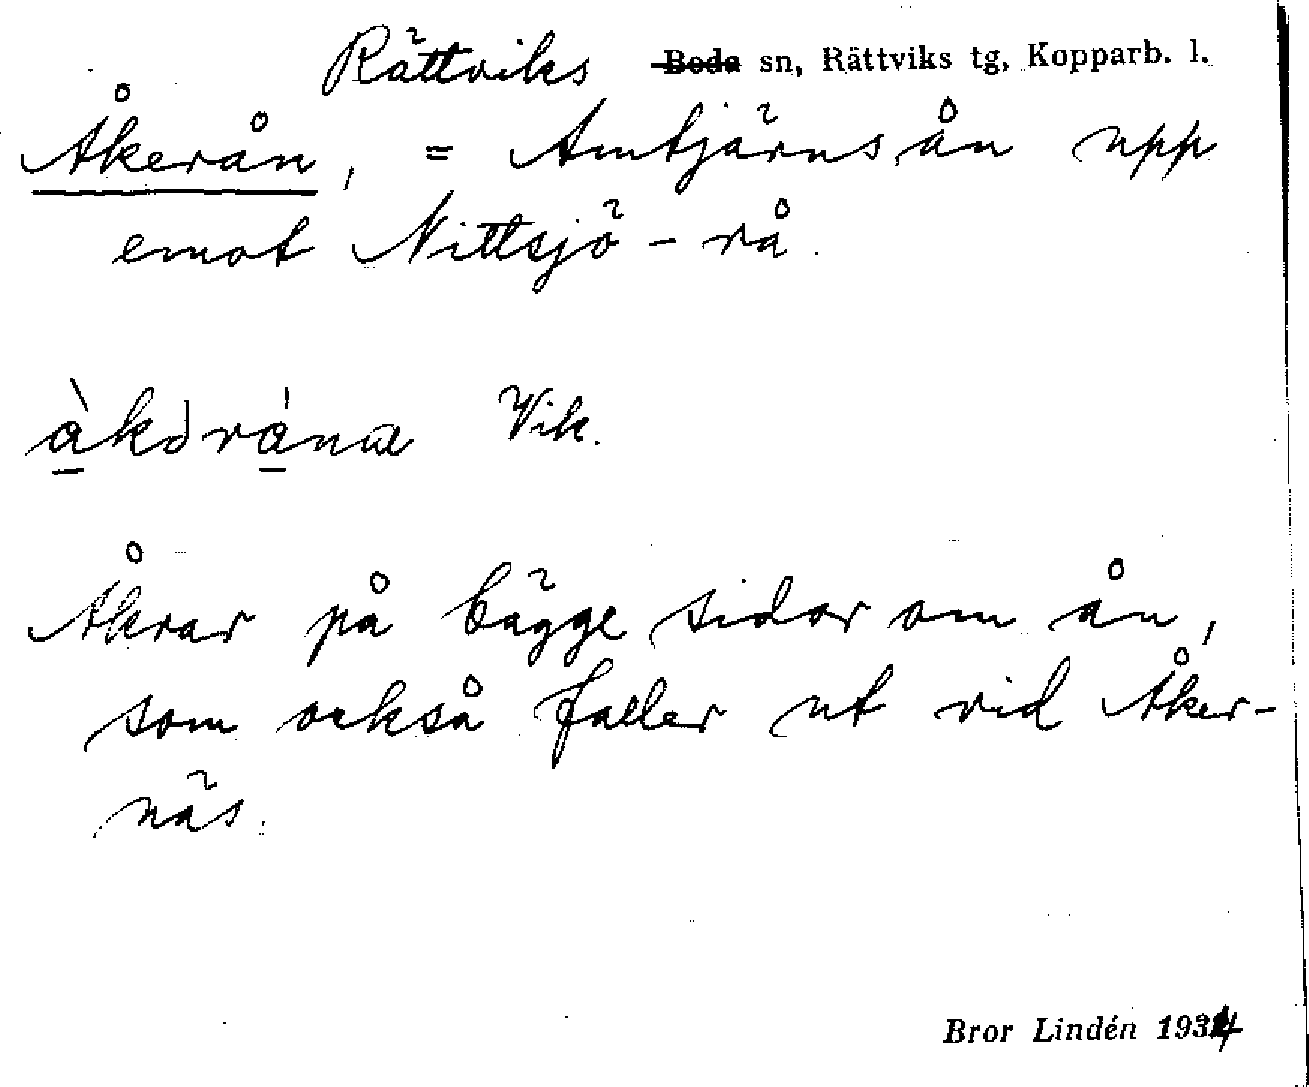 Rättviks ~~Boda~~ sn, Rättviks tg, Kopparb. l.
Åkerån, = Amtjärnsån upp
emot Nittsjö-rå.
à̱kərá̱na Vik.
Åkrar på bägge sidor om ån,
som också faller ut vid Åker-
näs.
Bror Lindén 1934